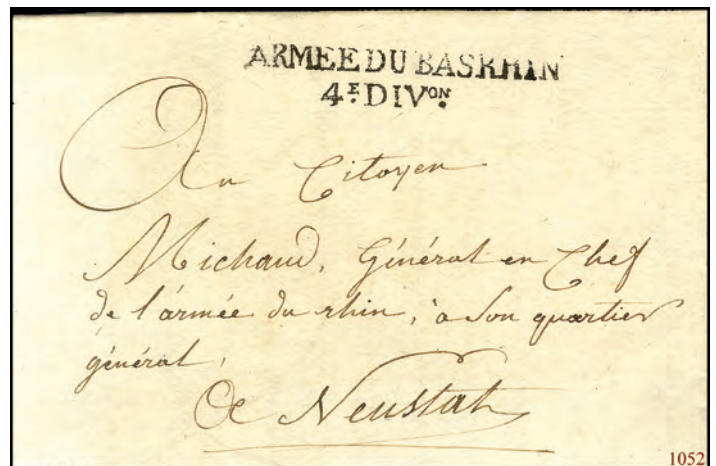 ARMEE DU BAS RHIN
4E. DIVON.
Au Citoyen
Michaud, Général en Chef
de l'armée du rhin, à Son quartier
général,
A Neustat
1052